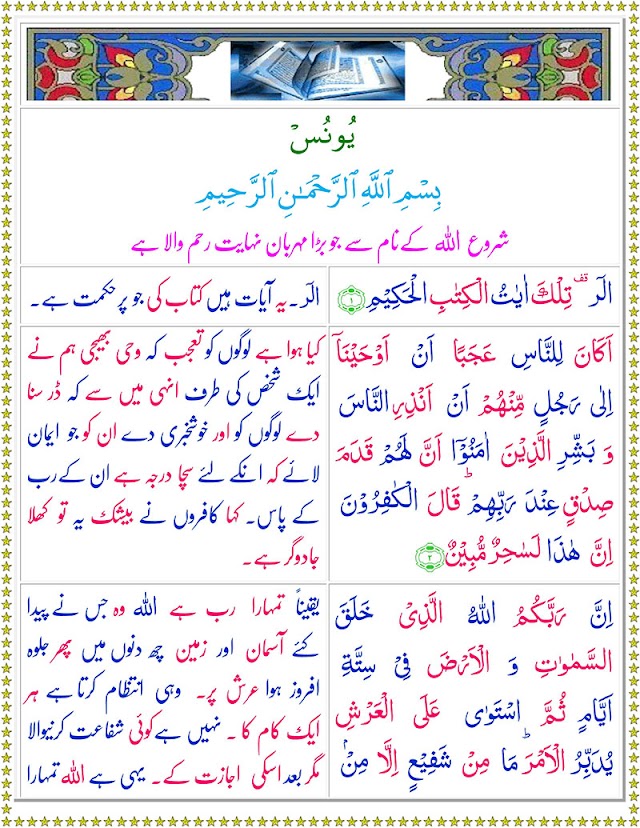 یُونُسْ
بِسْمِ ٱللَّهِ ٱلرَّحْمَـٰنِ ٱلرَّحِيمِ
شروع اللہ کے نام سے جو بڑا مہربان نہایت رحم والا ہے
الٓرٰ ۫ تِلْكَ اٰیٰتُ الْكِتٰبِ الْحَكِیْمِ ۝۱
الٓرٰ۔ یہ آیات ہیں کتاب کی جو پر حکمت ہے۔
اَكَانَ لِلنَّاسِ عَجَبًا اَنْ اَوْحَیْنَاۤ
اِلٰی رَجُلٍ مِّنْهُمْ اَنْ اَنْذِرِ النَّاسَ
وَ بَشِّرِ الَّذِیْنَ اٰمَنُوْۤا اَنَّ لَهُمْ قَدَمَ
صِدْقٍ عِنْدَ رَبِّهِمْ ؕ قَالَ الْكٰفِرُوْنَ
اِنَّ هٰذَا لَسٰحِرٌ مُّبِیْنٌ ۝۲
کیا ہوا ہے لوگوں کو تعجب کہ وحی بھیجی ہم نے
ایک شخص کی طرف انہی میں سے کہ ڈر سنا
دے لوگوں کو اور خوشخبری دے ان کو جو ایمان
لائے کہ انکے لئے سچا درجہ ہے ان کے رب
کے پاس۔ کہا کافروں نے بیشک یہ تو کھلا
جادوگر ہے۔
اِنَّ رَبَّكُمُ اللّٰهُ الَّذِیْ خَلَقَ
السَّمٰوٰتِ وَ الْاَرْضَ فِیْ سِتَّةِ
اَیَّامٍ ثُمَّ اسْتَوٰی عَلَی الْعَرْشِ
یُدَبِّرُ الْاَمْرَ ؕ مَا مِنْ شَفِیْعٍ اِلَّا مِنْۢ
یقیناً تمہارا رب ہے اللہ وہ جس نے پیدا
کئے آسمان اور زمین چھ دنوں میں پھر جلوہ
افروز ہوا عرش پر۔ وہی انتظام کرتا ہے ہر
ایک کام کا۔ نہیں ہے کوئی شفاعت کرنیوالا
مگر بعد اسکی اجازت کے۔ یہی ہے اللہ تمہارا